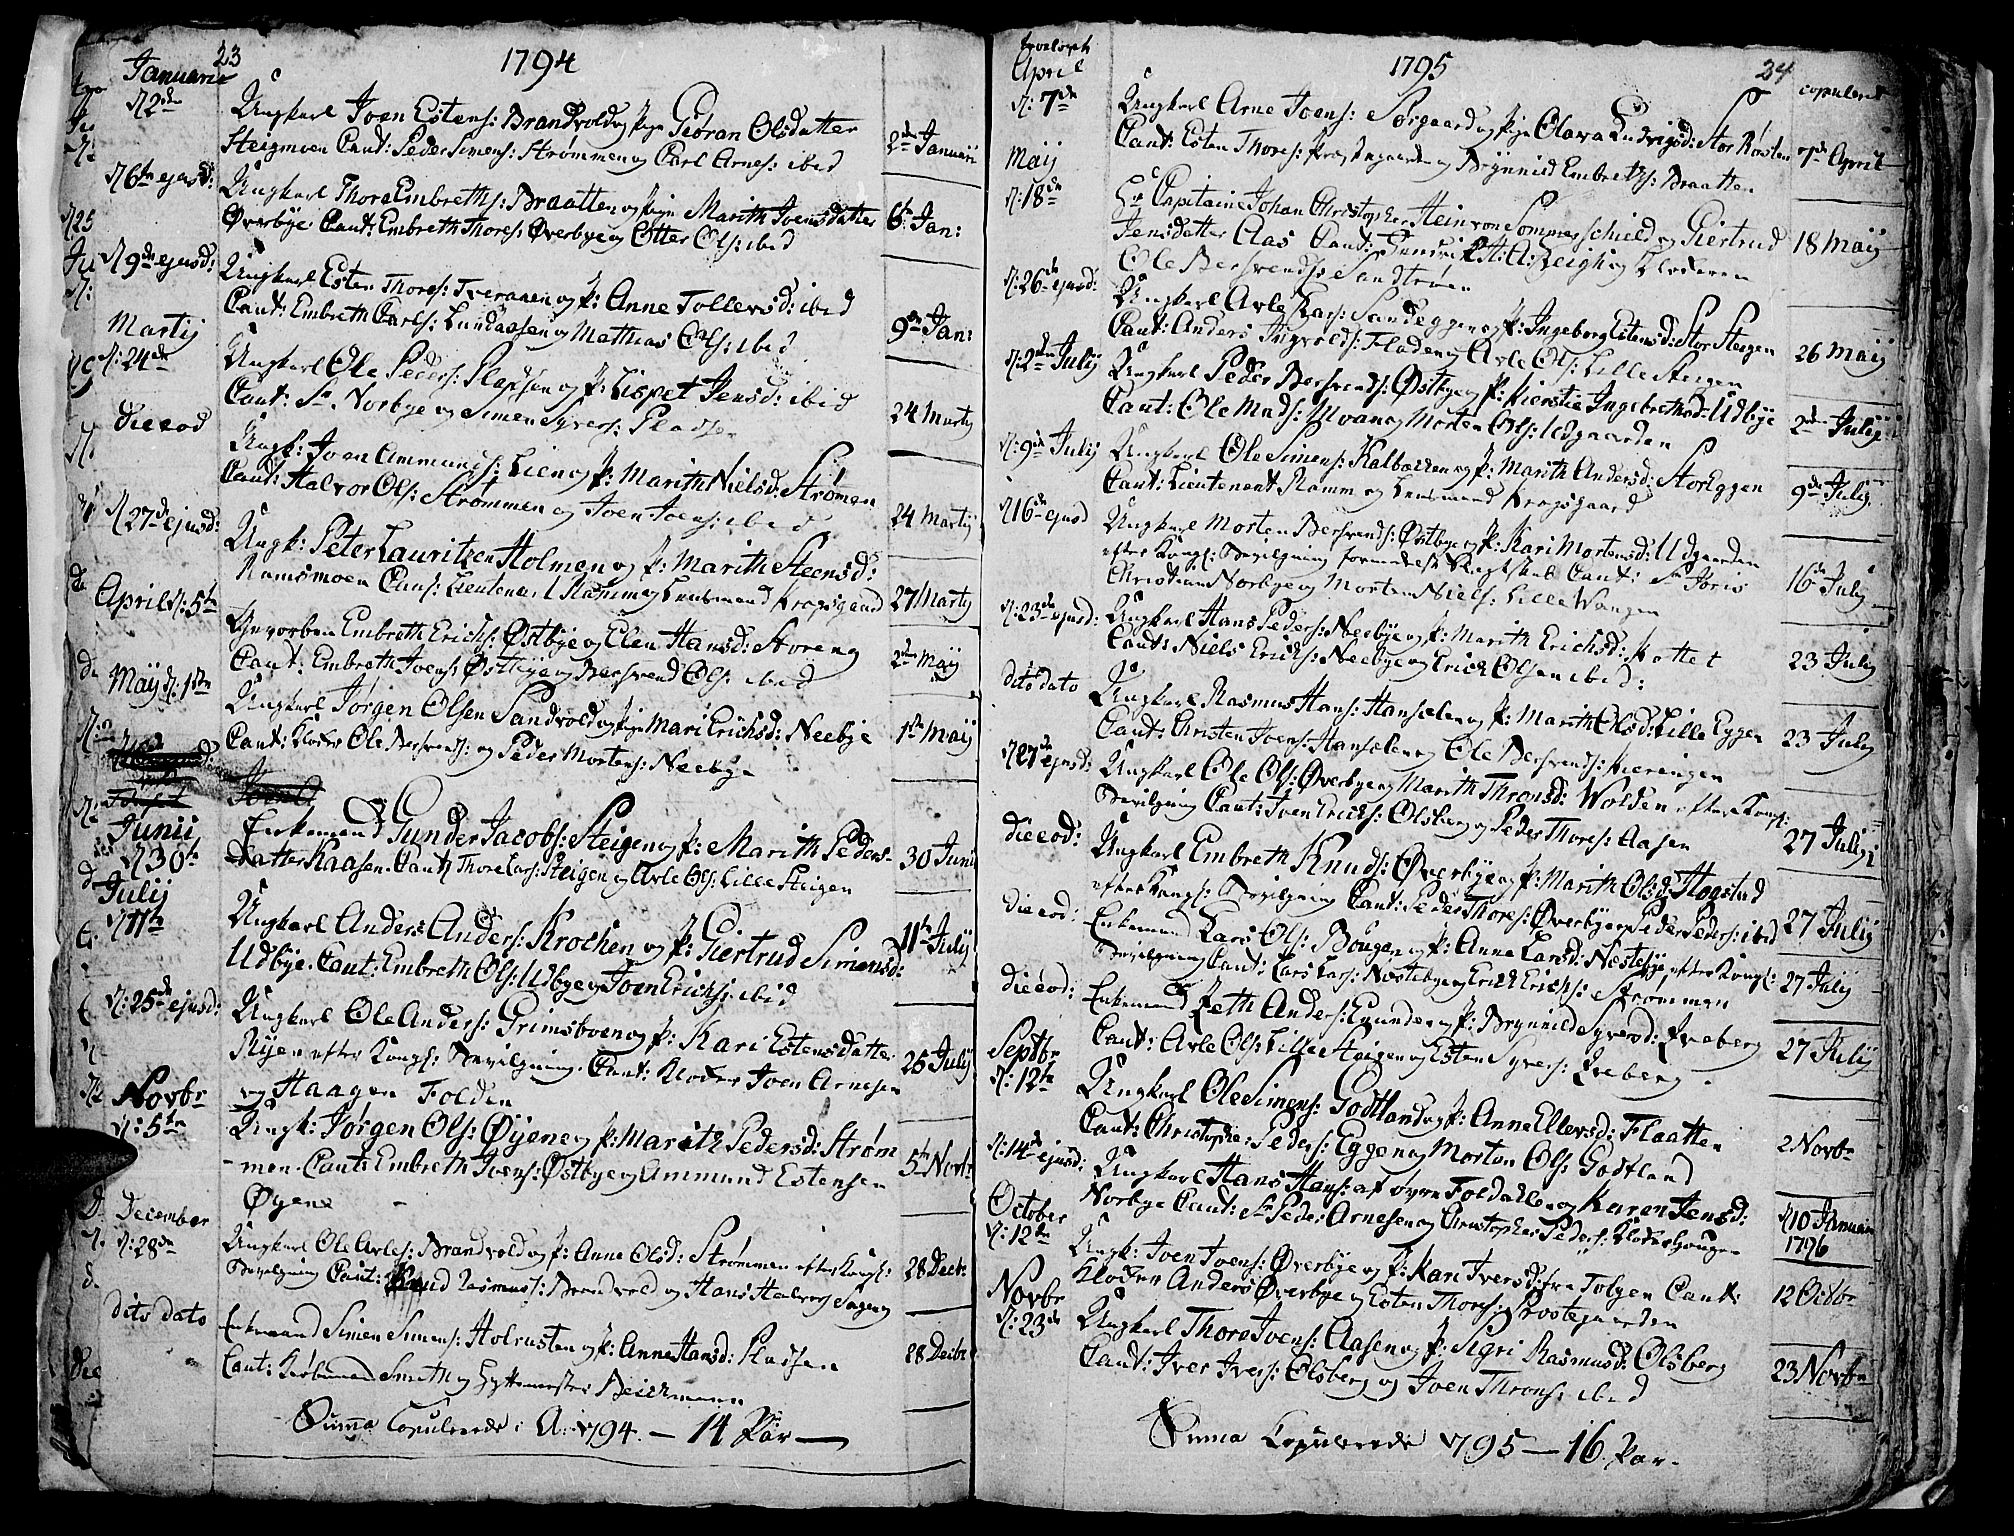 23
1794
Januarii
d 2den
Ungkarl Joen Estens: Brandvold og Pige Giøran Olsdatter
Steigmoen Caut: Peder Simens: Strømmen og Carl Arnes: ibid
2de Januarii
d 6te ejusd:
Ungkarl Thore Embreths: Braatten og Pige Marith Joensdatter
Øverbÿe Caut: Embreth Thores: Øverbye og Otter Ols: ibid
6te Jan:
d 9de ejusd:
Ungkarl Esten Thores: Tveraaen og P: Anne Tollevsd: ibid
Caut: Embreth Carls: Lundaasen og Mathias Ols: ibid
9de Jan:
Martij
d: 24de
Ungkarl Ole Peders: Pladsen og P: Lispet Jensd: ibid
Caut: Sr Norbye og Simen Syvers: Pladsen
24 Martij
die eod
Ungk: Joen Ammunds: Lien og P: Marith Nielsd: Strømen
Caut: Halvor Ols: Strømmen og Joen Joens: ibid
24 Martij
d 27de ejusd:
Ungk: Peter Lauritzen Holmen og P: Marith Steensd:
Ramsmoen Caut: Lieutenant Ramm og Lensmand Kropsgaard
27 Martij
April d: 5te
Gevorben Embreth Erichs: Østbye og Elen Hansd: Storeng
Caut: Embreth Joens: Østbÿe og Bersvend Ols: ibid
2den Maij
Maÿ d: 1ste
Ungkarl Jørgen Olsen Sandvold og Pige Mari Erichsd: Neebye
Caut: Klocker Ole Bersvends: og Peder Mortens: Neebye
1ste Maij
Junii
d 30te
Enkemand Gunder Jacobs: Steigen og P: Marith Peders-
datter Kaasen. Caut: Thore Lars: Steigen og Arle Ols: Lille Steigen
30 Junii
Julij
d 11te
Ungkarl Anders Anders: Krochen og P: Giertrud Simensd:
Udbÿe. Caut: Embreth Ols: Udbye og Joen Erichs: ibid
11te Julij
d: 25de ejusd:
Ungkarl Ole Anders: Grimsboen og P: Kari Estensdatter
Rÿen efter Kongl: Bevilgning. Caut: Klocker Joen Arnesen
og Haagen Folden
25 Julij
Novbr
d: 5te
Ungk: Jørgen Ols: Øÿen og P: Marith Pedersd: Strøm
men. Caut: Embreth Joens: Østbye og Ammund Estensen
Øÿen
5te Novbr
December
d: 28de
Ungkarl Ole Arles: Brandvold og P: Anne Olsd: Strømmen efter Kongl:
Bevilgning Caut: Knud Rasmus: Brandvold og Hans Halvors:
28 Decbr
dito dato
Enkemand Simen Simens: Holrusten og P: Anne Hansd: Pladsen
Caut: Smith og Hyttemester Beichmann
28 Decbr
Suma Copulerede i A: 1794. - 14 Par -
1795
24
April
d: 7de
copuleret
Ungkarl Arne Joens: Sørgaard og Pige Olava Ludvigsd: Stor Røsten
Caut: Esten Thores: Præstgaarden og Brynnild Embreths: Braatten
7de April
Maij
d: 18de
Hr Capitaine Johan Christopher Hein von Sommerschield og Giertrud
Jensdatter Aas Caut: og Klockeren
Ole Bersvends: Sandtrøen
18 Maij
d: 26de ejusd:
Ungkarl Arle Lars: Sandeggen og P: Ingeborg Estensd: Stor Steigen
Caut: Anders Ingvolds: Floden og Arle Ols: Lille Steigen
26 Maij
d: 2den Julij
Ungkarl Peder Bersvends: Østbye og P: Kierstie Ingebrethsd: Udbÿe
Caut: Ole Mads: Moen og Morten Ols: Udgaarden
2den Julij
d: 9de Julij
Ungkarl Ole Simens: Kalbækken og P: Marith Andersd: Stor Eggen
Caut: Lieutenant Ramm og Lensmand Kropsgaard
9de Julij
d 16de ejusd
Ungkarl Morten Bersvends: Østbye og P: Kari Mortensd: Udgaarden
efter Kongl: Bevilgning formedelst Slegtskab Caut: Sr Joris
Christian Norbye og Morten Niels: Lille Wangen
16de Julij
d: 23de ejusd:
Ungkarl Hans Peders: Neebye og P: Marith Erichsd:
Caut: Niels Erichs: Neebye og Erich Olsen ibid:
23 Julij
dito dato
Ungkarl Rasmus Hans: Hanselen og P: Marith Olsd: Lille Eggen
Caut: Christen Joens: Hanselen og Ole Bersvends: Kieringen
23 Julij
d 27de ejusd:
Ungkarl Ole Ols: Øverbye og Marith Thronsd: Wolden efter Kongl:
Bevilgning Caut: Joen Erichs: Olsberg og Peder Thores: Aasen
27 Julij
die eod:
Ungkarl Embreth Knuds: Øverbÿe og P: Marith Olsd: Hogstad
efter Kongl: Bevilgning Caut: Peder Thores: Øverbye og Peder Peders: ibid
27 Julij
die eod:
Enkemand Lars Ols: Bougen og P: Anne Larsd: Nestebye efter Kongl:
Bevilgning Caut: Lars Lars: Nestebye og Erich Erichs: Strømmen
27 Julij
die eod:
Enkemand Zeth Anders: og P: Brynnild Syversd: Qveberg
Caut: Arle Ols: Lille Steigen og Esten Syvers: Qveberg.
27 Julij
Septbr
d: 12te
Ungkarl Ole Simens: Godtland og P: Anne Ellevsd: Flaatten
Caut: Christopher Peders: Eggen og Morten Ols: Godtland
2 Novbr
d: 14de ejusd:
Ungkarl Hans Hans: af øvre Foldalen og Karen Jensd:
Norbye Caut: Sr Peder Arnesen og Christopher Peders: Klocker Hougen
d 10 Januarii
1796
October
d: 12te
Ungk: Joen Joens: Øverbye og P: Kari Iversd: fra Tolgen Caut:
Klocker Anders Øverbye og Esten Thores: Prostegaarden
12 Octbr
Novbr
d: 23de
Ungkarl Thore Joens: Aasen og P: Sigri Rasmusd: Olsberg
Caut: Iver Ivers: Olsberg og Joen Throns: ibid
23 Novbr
Suma Copulerede 1795 - 16. Par.